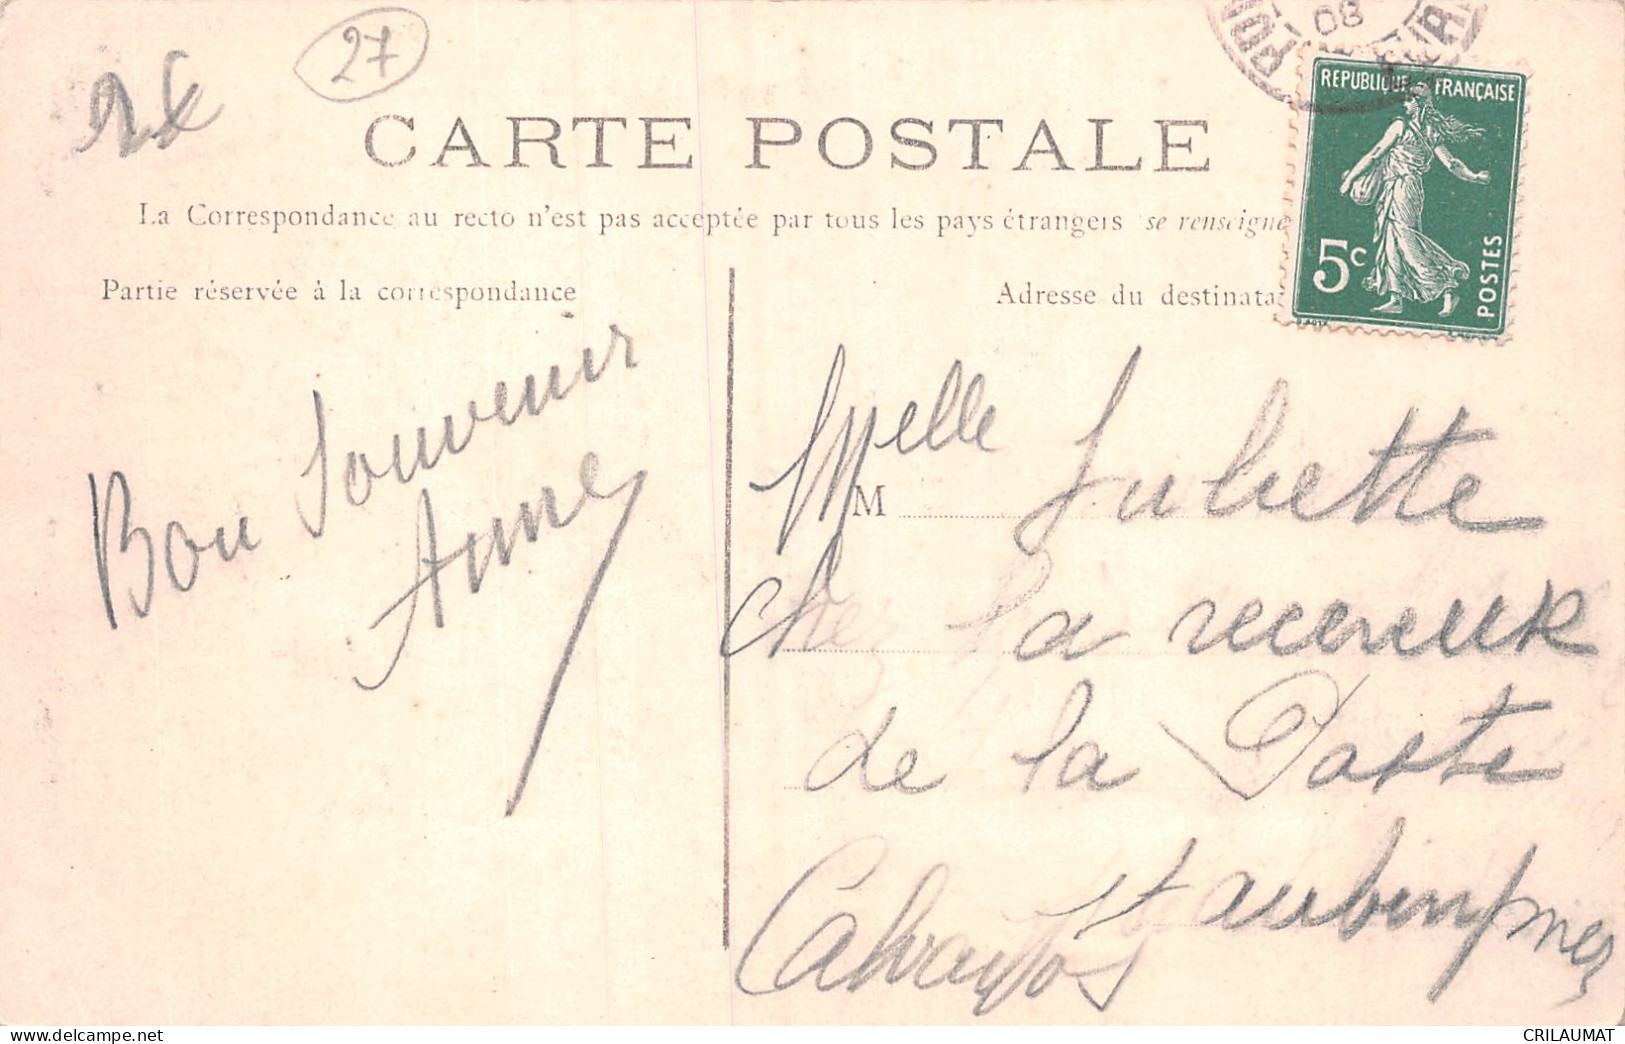 27
08
REPUBLIQUE FRANÇAISE
5c
POSTES
CARTE POSTALE
La Correspondance au recto n'est pas acceptée par tous les pays étrangers se renseigne
Partie réservée à la correspondance
Adresse du destinata
Bon Souvenir
Anne
Melle Juliette
M
chez la receveuse
de la Poste
St aubin s mer
Calvados
CRILAUMAT